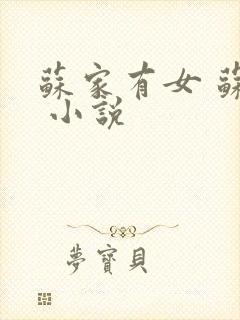 蘇家有女 蘇
小説
夢寶貝